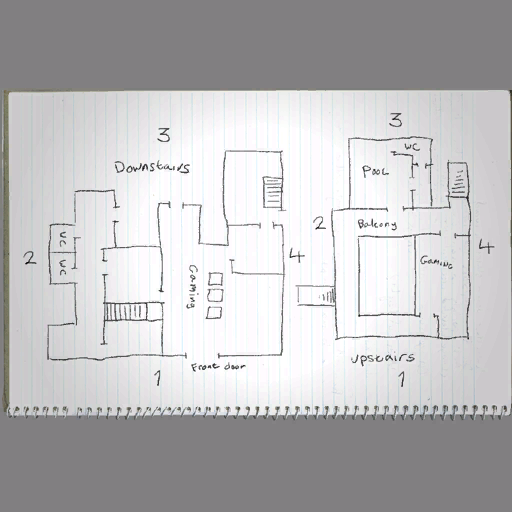 3
Downstairs
2
WC
WC
Gaming
4
1
Front door
3
WC
Pool
2
Balcony
Gaming
4
upstairs
1